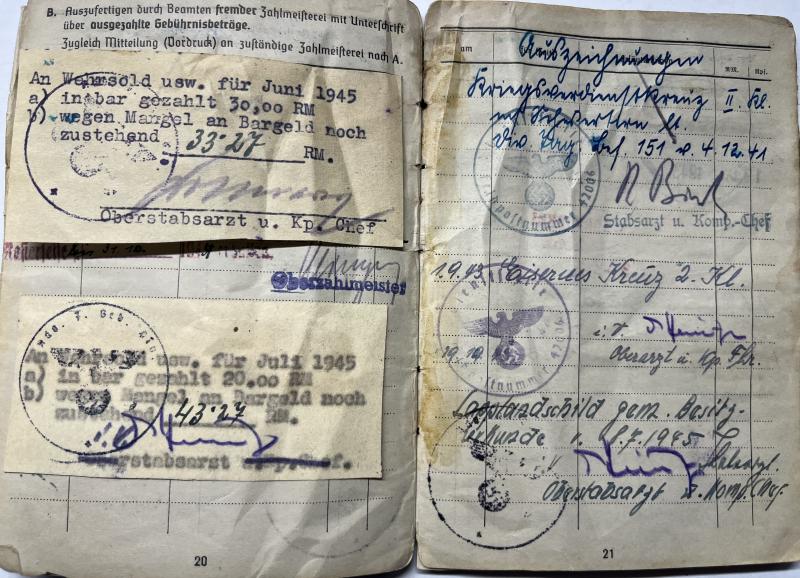 B. Auszufertigen durch Beamten fremder Zahlmeisterei mit Unterschrift
über ausgezahlte Gebührnisbeträge.
Zugleich Mitteilung (Vordruck) an zuständige Zahlmeisterei nach A.
An Wehrsold usw. für Juni 1945
a) in bar gezahlt 30,00 RM
b) wegen Mangel an Bargeld noch
zustehend 33·27 RM.
Oberstabsarzt u. Kp. Chef
Oberzahlmeister
An Wehrsold usw. für Juli 1945
a) in bar gezahlt 20.00 RM
b) wegen Mangel an Bargeld noch
zustehend 43·27 RM.
Oberstabsarzt u. Kp. Chef.
20
am
Auszeichnungen
Kriegsverdienstkreuz II. Kl.
mit Schwertern lt.
Div. Tag. Bef. 151 v. 4.12.41
Feldpostnummer 42006
Stabsarzt u. Komp.-Chef
1.9.43 Eisernes Kreuz 2. Kl.
i.V.
Oberarzt u. Kp. Fhr.
19.10.
Lapplandschild gem. Besitz-
urkunde v. 1.7.1945
Oberstabsarzt u. Komp. Chef.
21